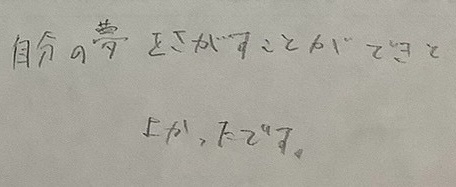 自分の夢をさがすことができと
よかったです。